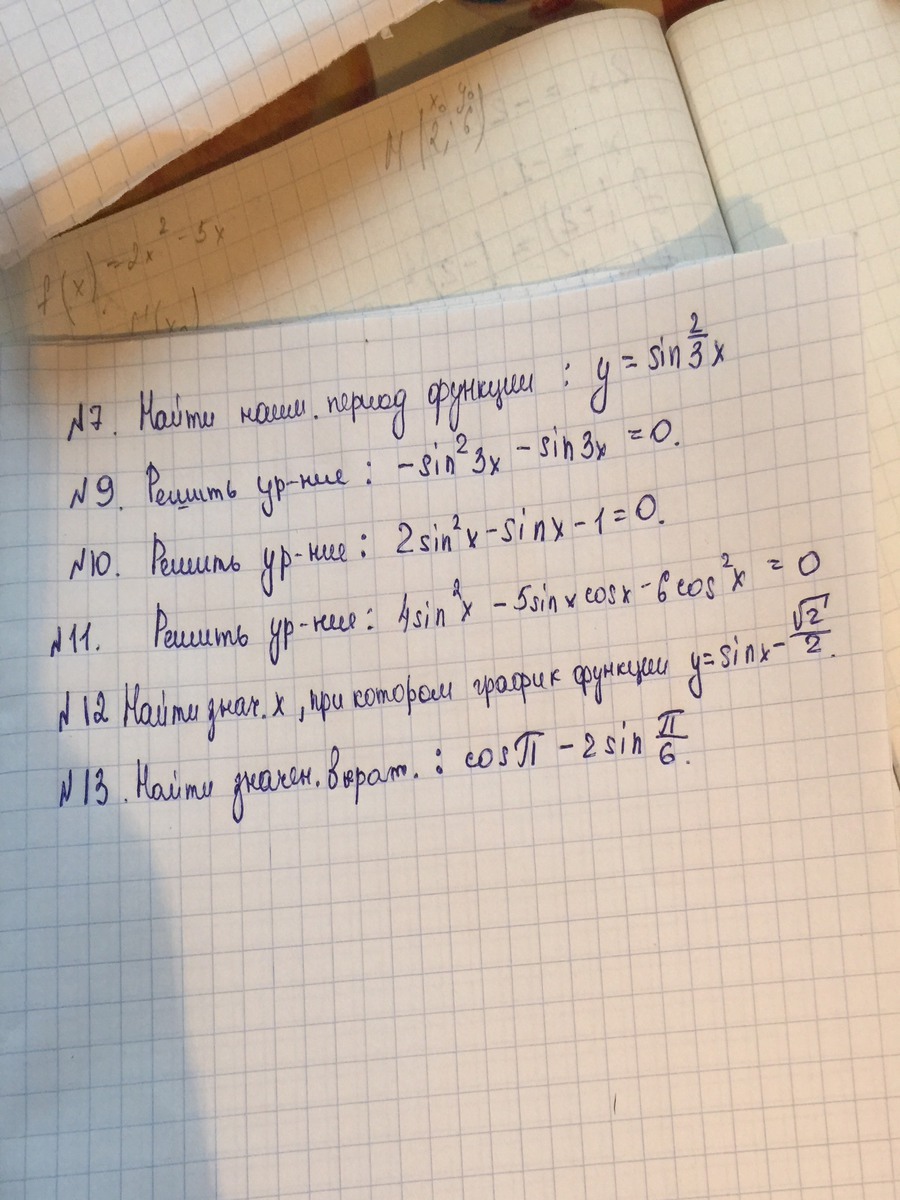 M (x₀ 2; y₀ 6)
f(x) = 2x² - 5x
N7. Найти наим. период функции : y = sin 2/3 x
N9. Решить ур-ние : -sin² 3x - sin 3x = 0.
N10. Решить ур-ние : 2 sin² x - sin x - 1 = 0.
N11. Решить ур-ние : 4 sin² x - 5 sin x cos x - 6 cos² x = 0
N12 Найти знач. x, при котором график функции y = sin x - √2/2.
N13. Найти значен. выраж. : cos π - 2 sin π/6.